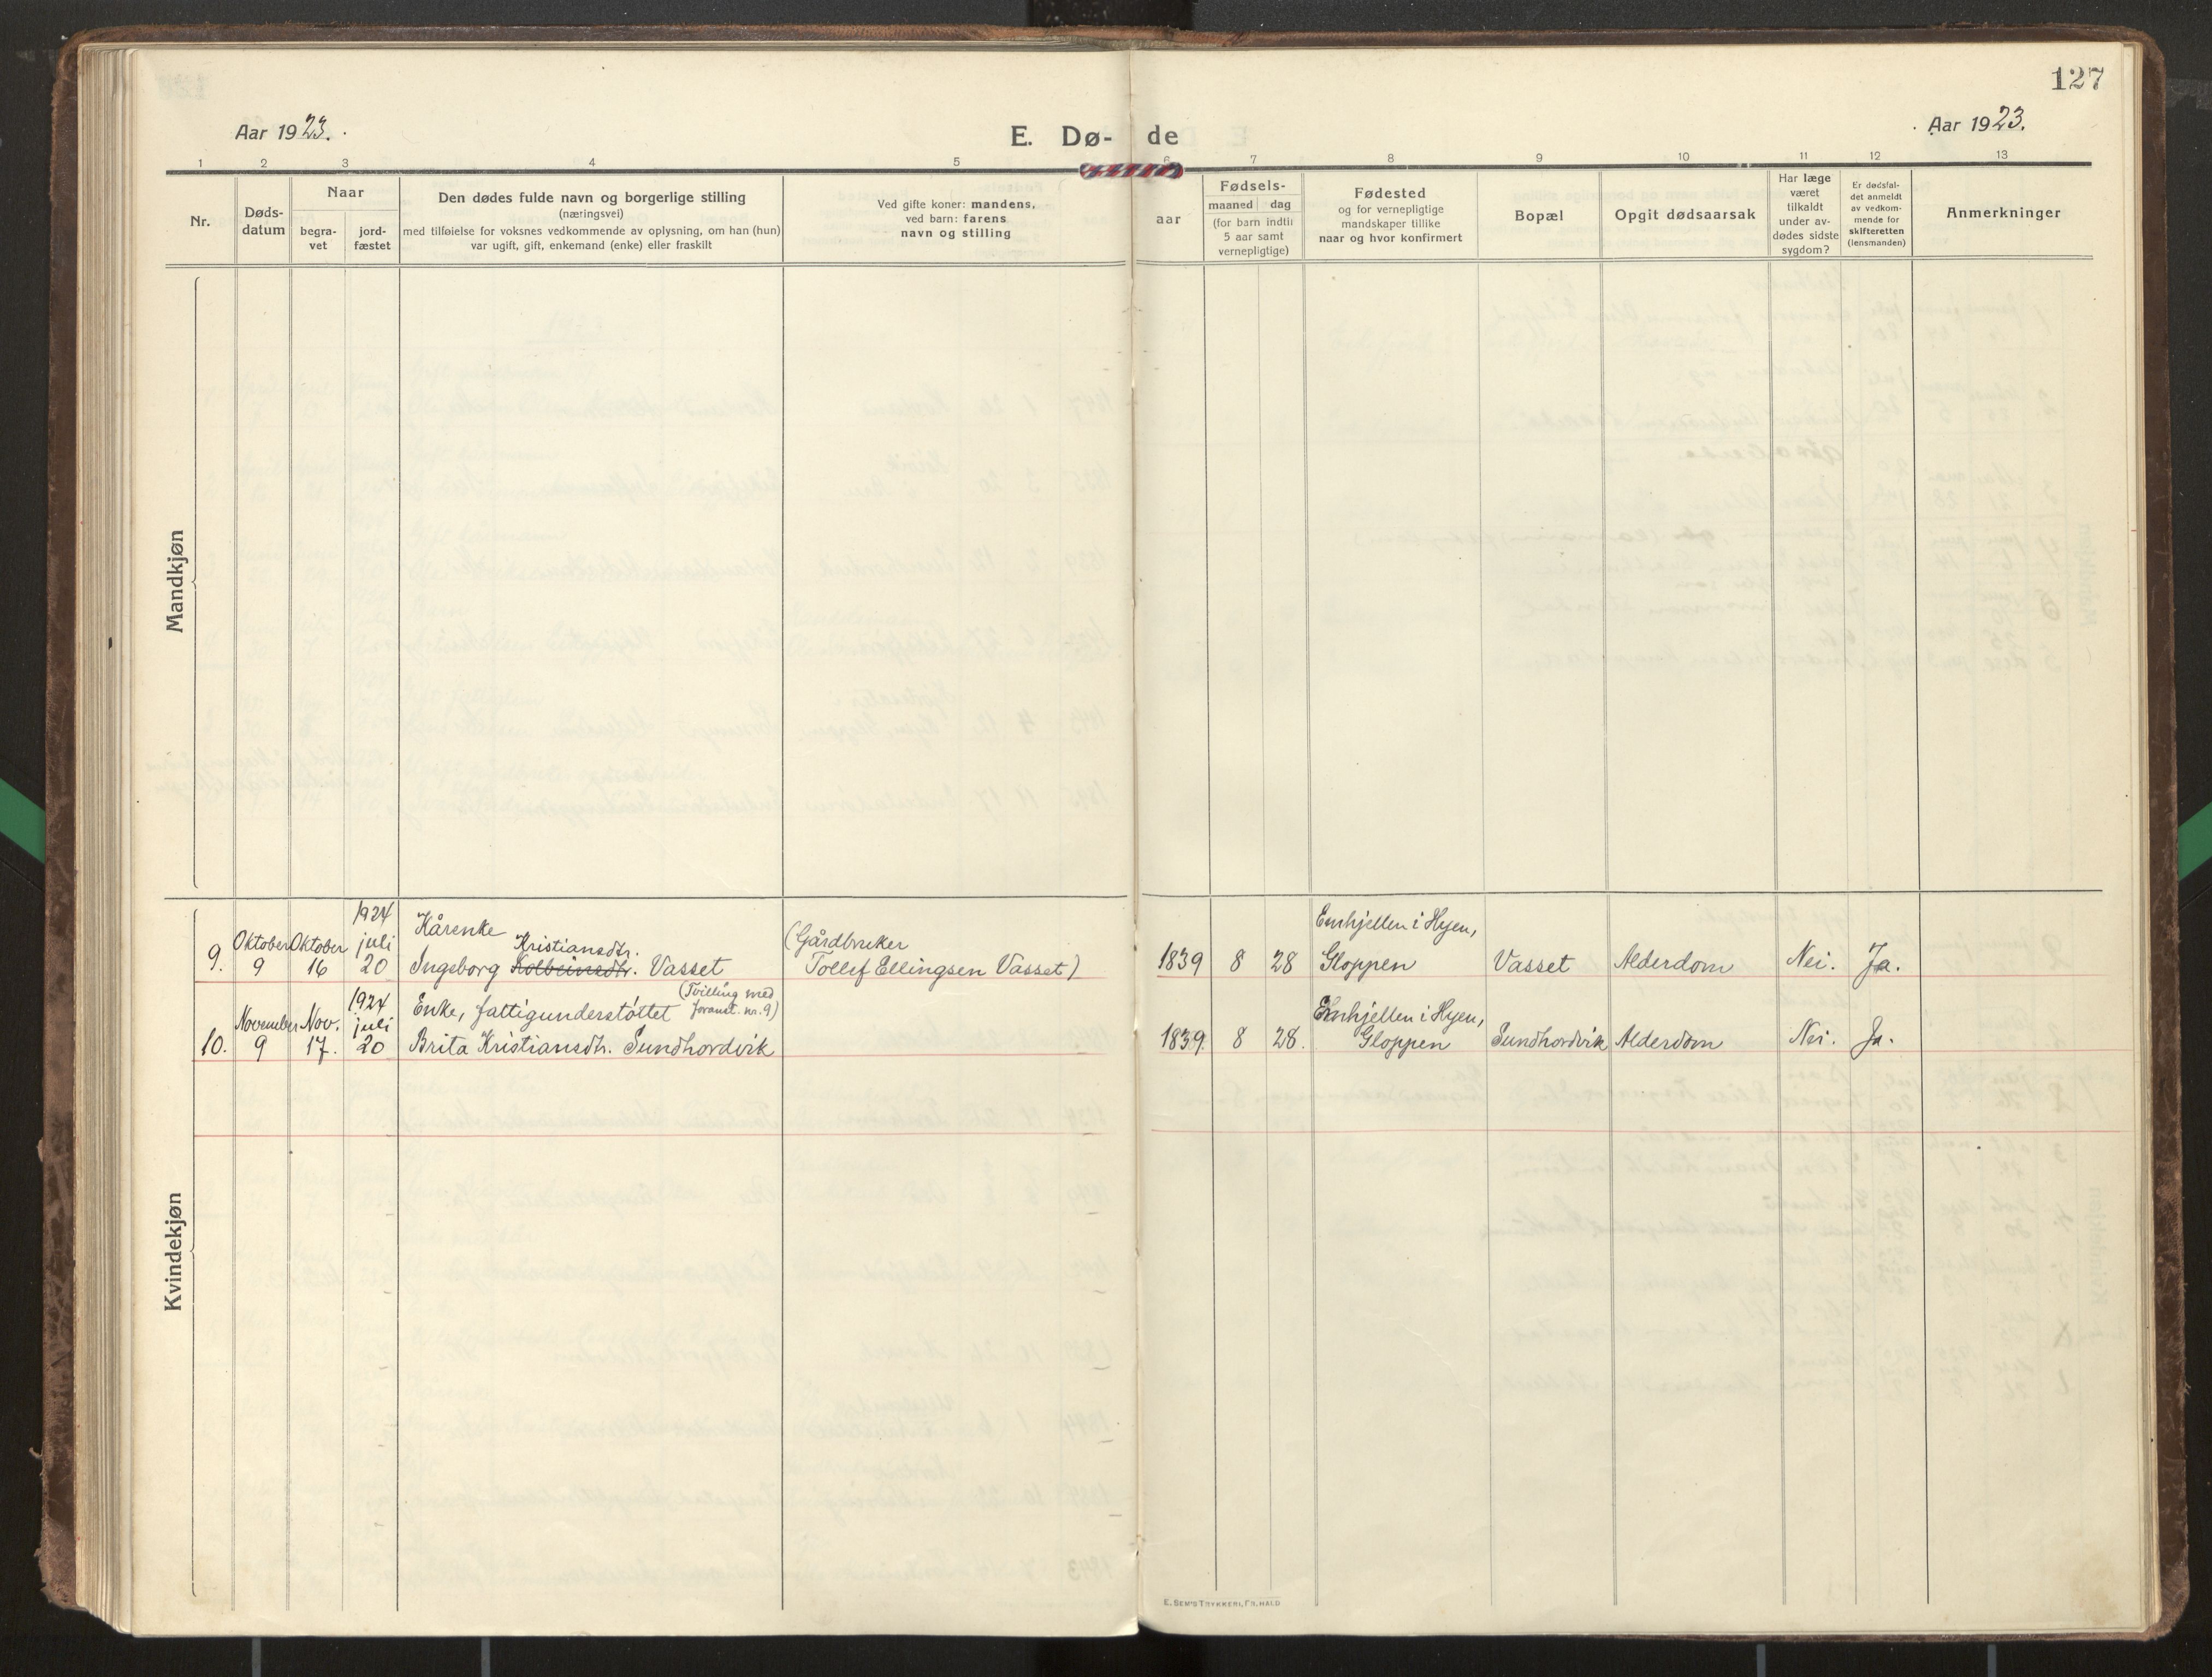 127
Aar 1923.
E. Dø- de
Aar 1923.
1 2 3 4 5 6 7 8 9 10 11 12 13
Nr.
Døds-
datum
Naar
begra-
vet
jord-
fæstet
Den dødes fulde navn og borgerlige stilling
(næringsvei)
med tilføielse for voksnes vedkommende av oplysning, om han (hun)
var ugift, gift, enkemand (enke) eller fraskilt
Ved gifte koner: mandens,
ved barn: farens
navn og stilling
aar
Fødsels-
maaned dag
(for barn indtil
5 aar samt
vernepligtige)
Fødested
og for vernepligtige
mandskaper tillike
naar og hvor konfirmert
Bopæl
Opgit dødsaarsak
Har læge
været
tilkaldt
under av-
dødes sidste
sygdom?
Er dødsfal-
det anmeldt
av vedkom-
mende for
skifteretten
(lensmanden)
Anmerkninger
Mandkjøn
Kvindekjøn
9.
Oktober
9
Oktober
16
1924
juli
20
Kårenke
Kristiansdtr.
Ingeborg Kolbeinsdtr. Vasset
(Gårdbruker
Tollef Ellingsen Vasset)
1839 8 28
Emhjellen i Hyen,
Gloppen
Vasset
Alderdom
Nei.
Ja.
10.
November
9
Nov.
17.
1924
juli
20
Enke, fattigunderstøttet
(Tvilling med
foranst. nr. 9)
Brita Kristiansdtr. Sundhordvik
1839. 8 28.
Emhjellen i Hyen,
Gloppen
Sundhordvik
Alderdom
Nei.
Ja.
E. SEM'S TRYKKERI, FR.HALD